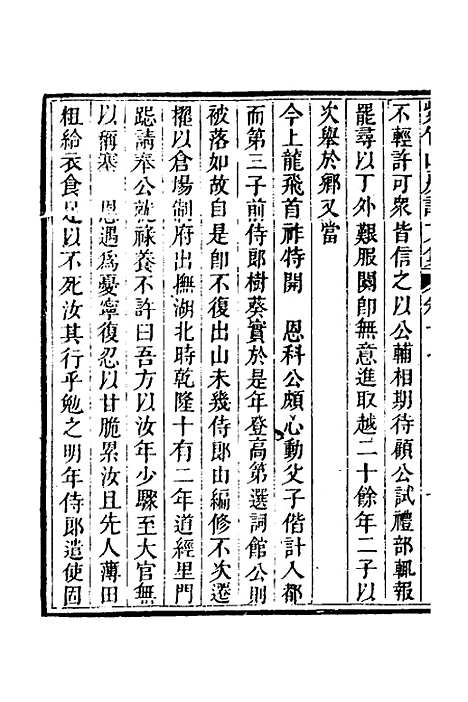 紫竹山房詩文集
不輕許可衆皆信之以公輔相期待顧公試禮部輒報
罷尋以丁外艱服闋卽無意進取越二十餘年二子以
次舉於鄉又當
今上龍飛首祚特開 恩科公頗心動父子偕計入都
而第三子前侍郎樹葵實於是年登高第選詞館公則
被落如故自是卽不復出山未幾侍郎由編修不次遷
擢以倉場制府出撫湖北時乾隆十有二年道經里門
跽請奉公就祿養不許曰吾方以汝年少驟至大官無
以稱塞 恩遇爲憂寧復忍以甘脆累汝且先人薄田
粗給衣食足以不死汝其行乎勉之明年侍郎遣使固